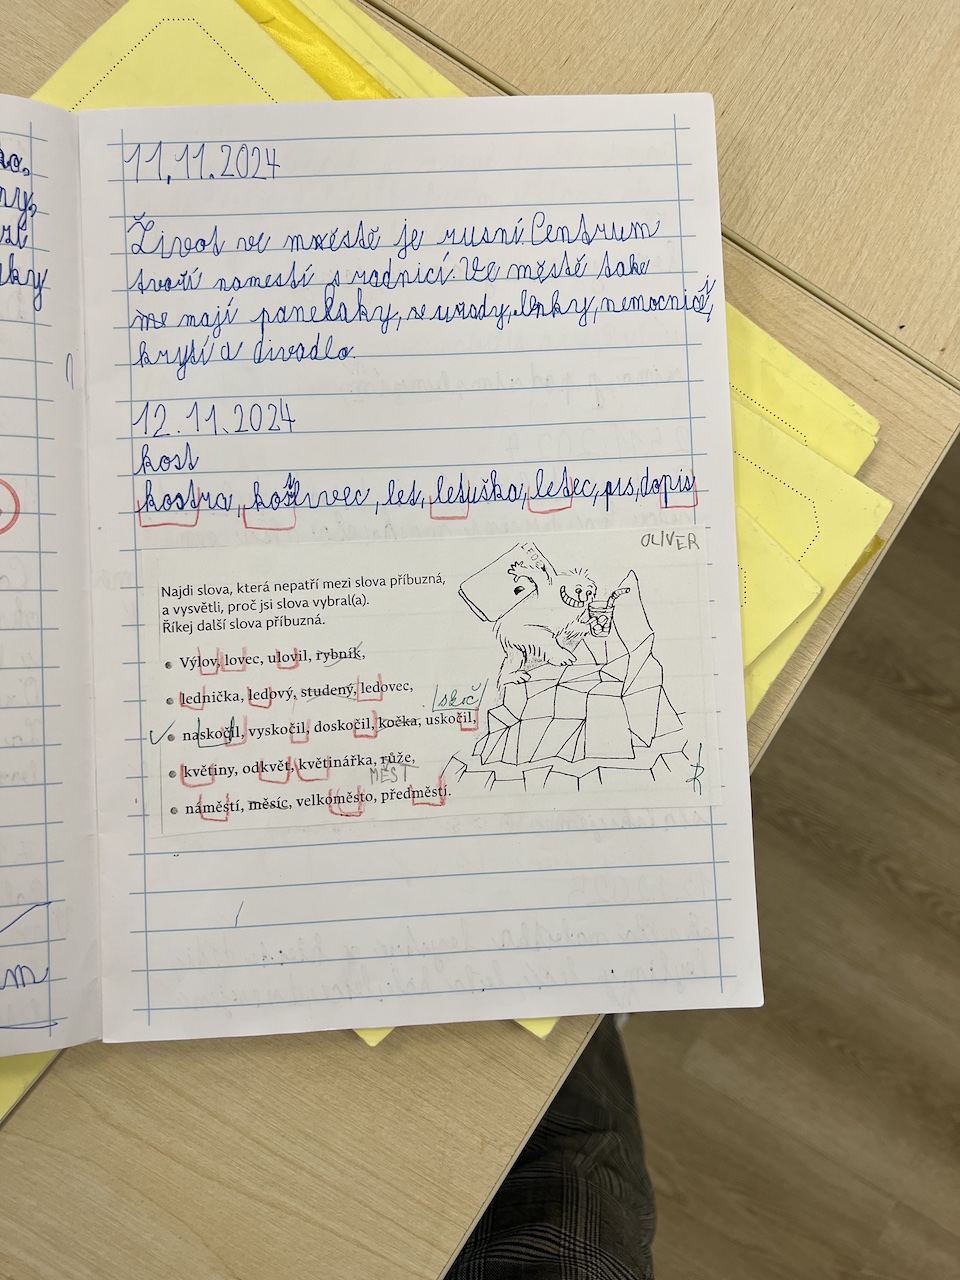 no.
ny,
ky
m
11.11.2024
Život ve městě je rusní. Centrum
tvoří namestí s radnicí. Ve městě take
me mají panelaky, uřady, nemocnice,
krysí a divadlo.
12.11.2024
kost
kostra, kostlivec, let, letuška, letec, pis, dopis
OLIVER
Najdi slova, která nepatří mezi slova příbuzná,
a vysvětli, proč jsi slova vybral(a).
Říkej další slova příbuzná.
LEDY
• Výlov, lovec, ulovil, rybník,
• lednička, ledový, studený, ledovec,
skoč
• naskočil, vyskočil, doskočil, kočka, uskočil,
• květiny, odkvět, květinářka, růže,
MĚST
• náměstí, měsíc, velkoměsto, předměstí.
R